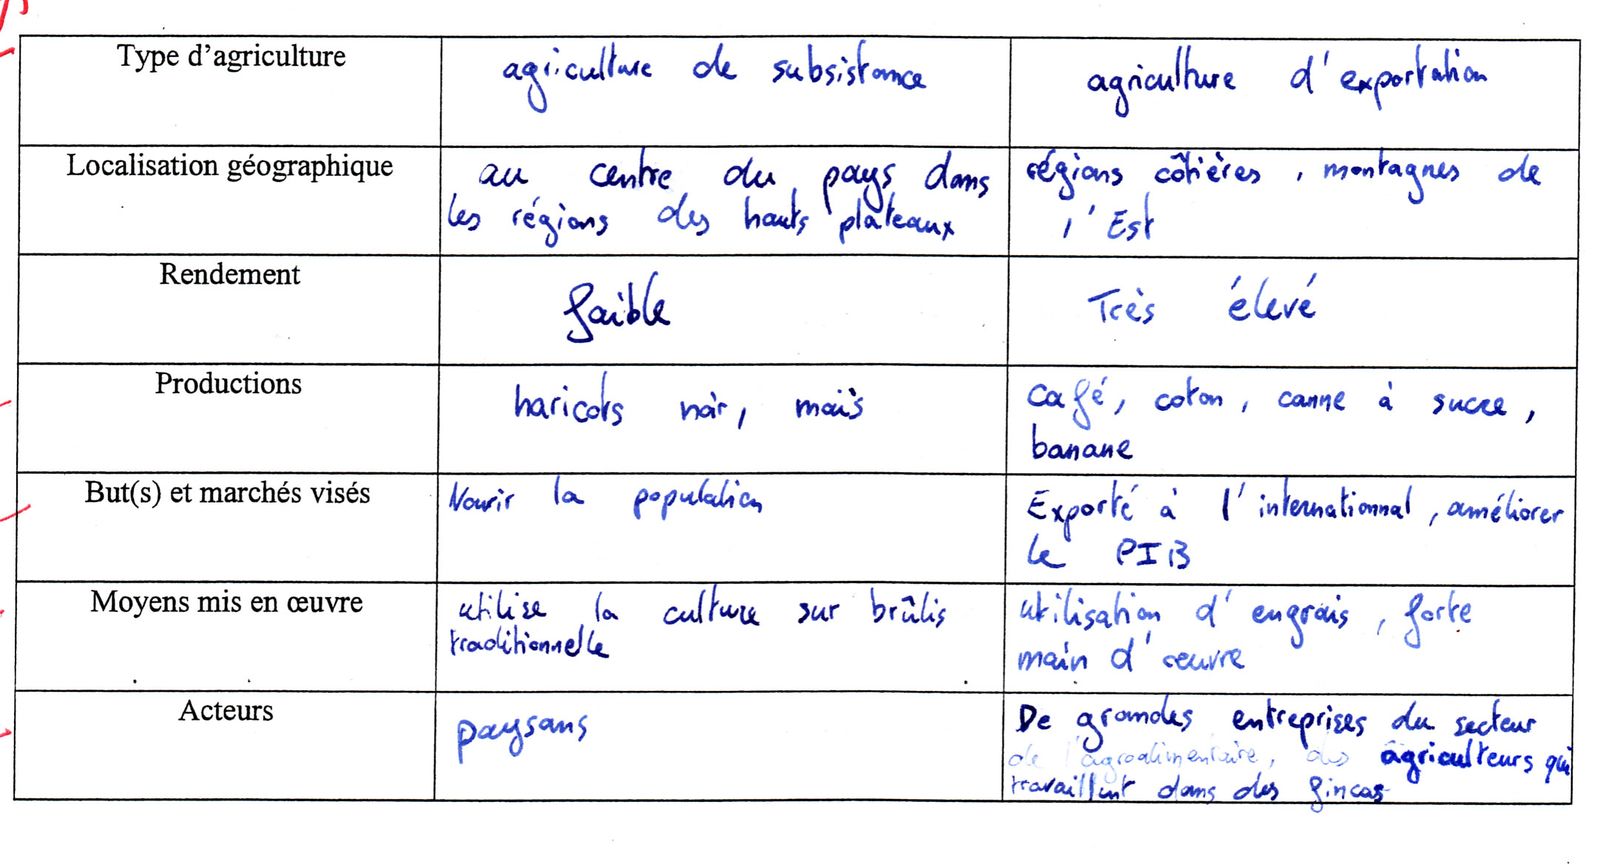 Type d'agriculture
agriculture de subsistance
agriculture d'exportation
Localisation géographique
au centre du pays dans
les régions des hauts plateaux
régions côtières, montagnes de
l'Est
Rendement
faible
Très élevé
Productions
haricots noir, maïs
Café, coton, canne à sucre,
banane
But(s) et marchés visés
Nourir la population
Exporté à l'internationnal, améliorer
le PIB
Moyens mis en œuvre
utilise la culture sur brûlis
traditionnelle
utilisation d'engrais, forte
main d'œuvre
Acteurs
paysans
De grandes entreprises du secteur
de l'agroalimentaire, des agriculteurs qui
travaillent dans des fincas